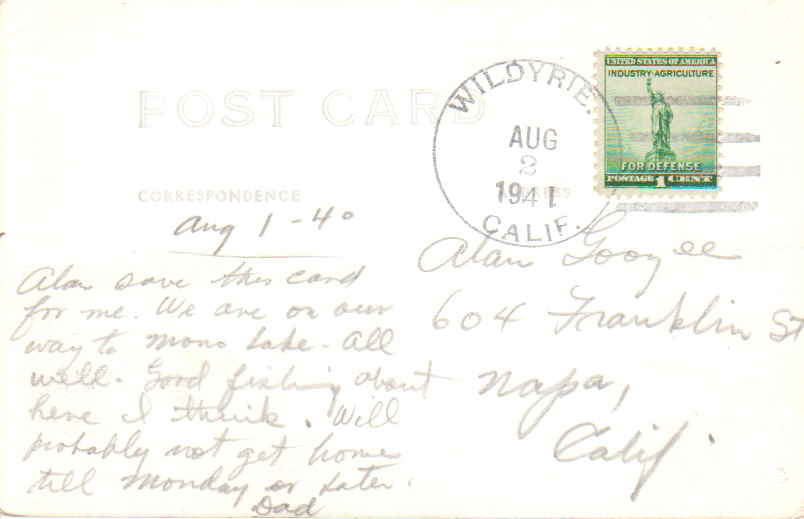 POST CARD
CORRESPONDENCE
WILDYRIE.
AUG
2
1941
CALIF.
UNITED STATES OF AMERICA
INDUSTRY·AGRICULTURE
FOR DEFENSE
POSTAGE 1 CENT
Aug 1 - 40
Alan save this card
for me. We are on our
way to Mono Lake - All
well. Good fishing about
here I think. Will
probably not get home
till Monday or later.
Dad
Alan
604 Franklin St
Napa,
Calif.